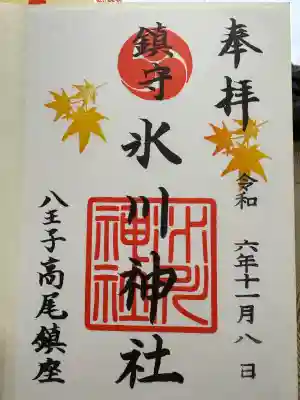 奉拝
令和 六年十一月八日
鎮守 氷川神社
氷川神社
八王子高尾鎮座